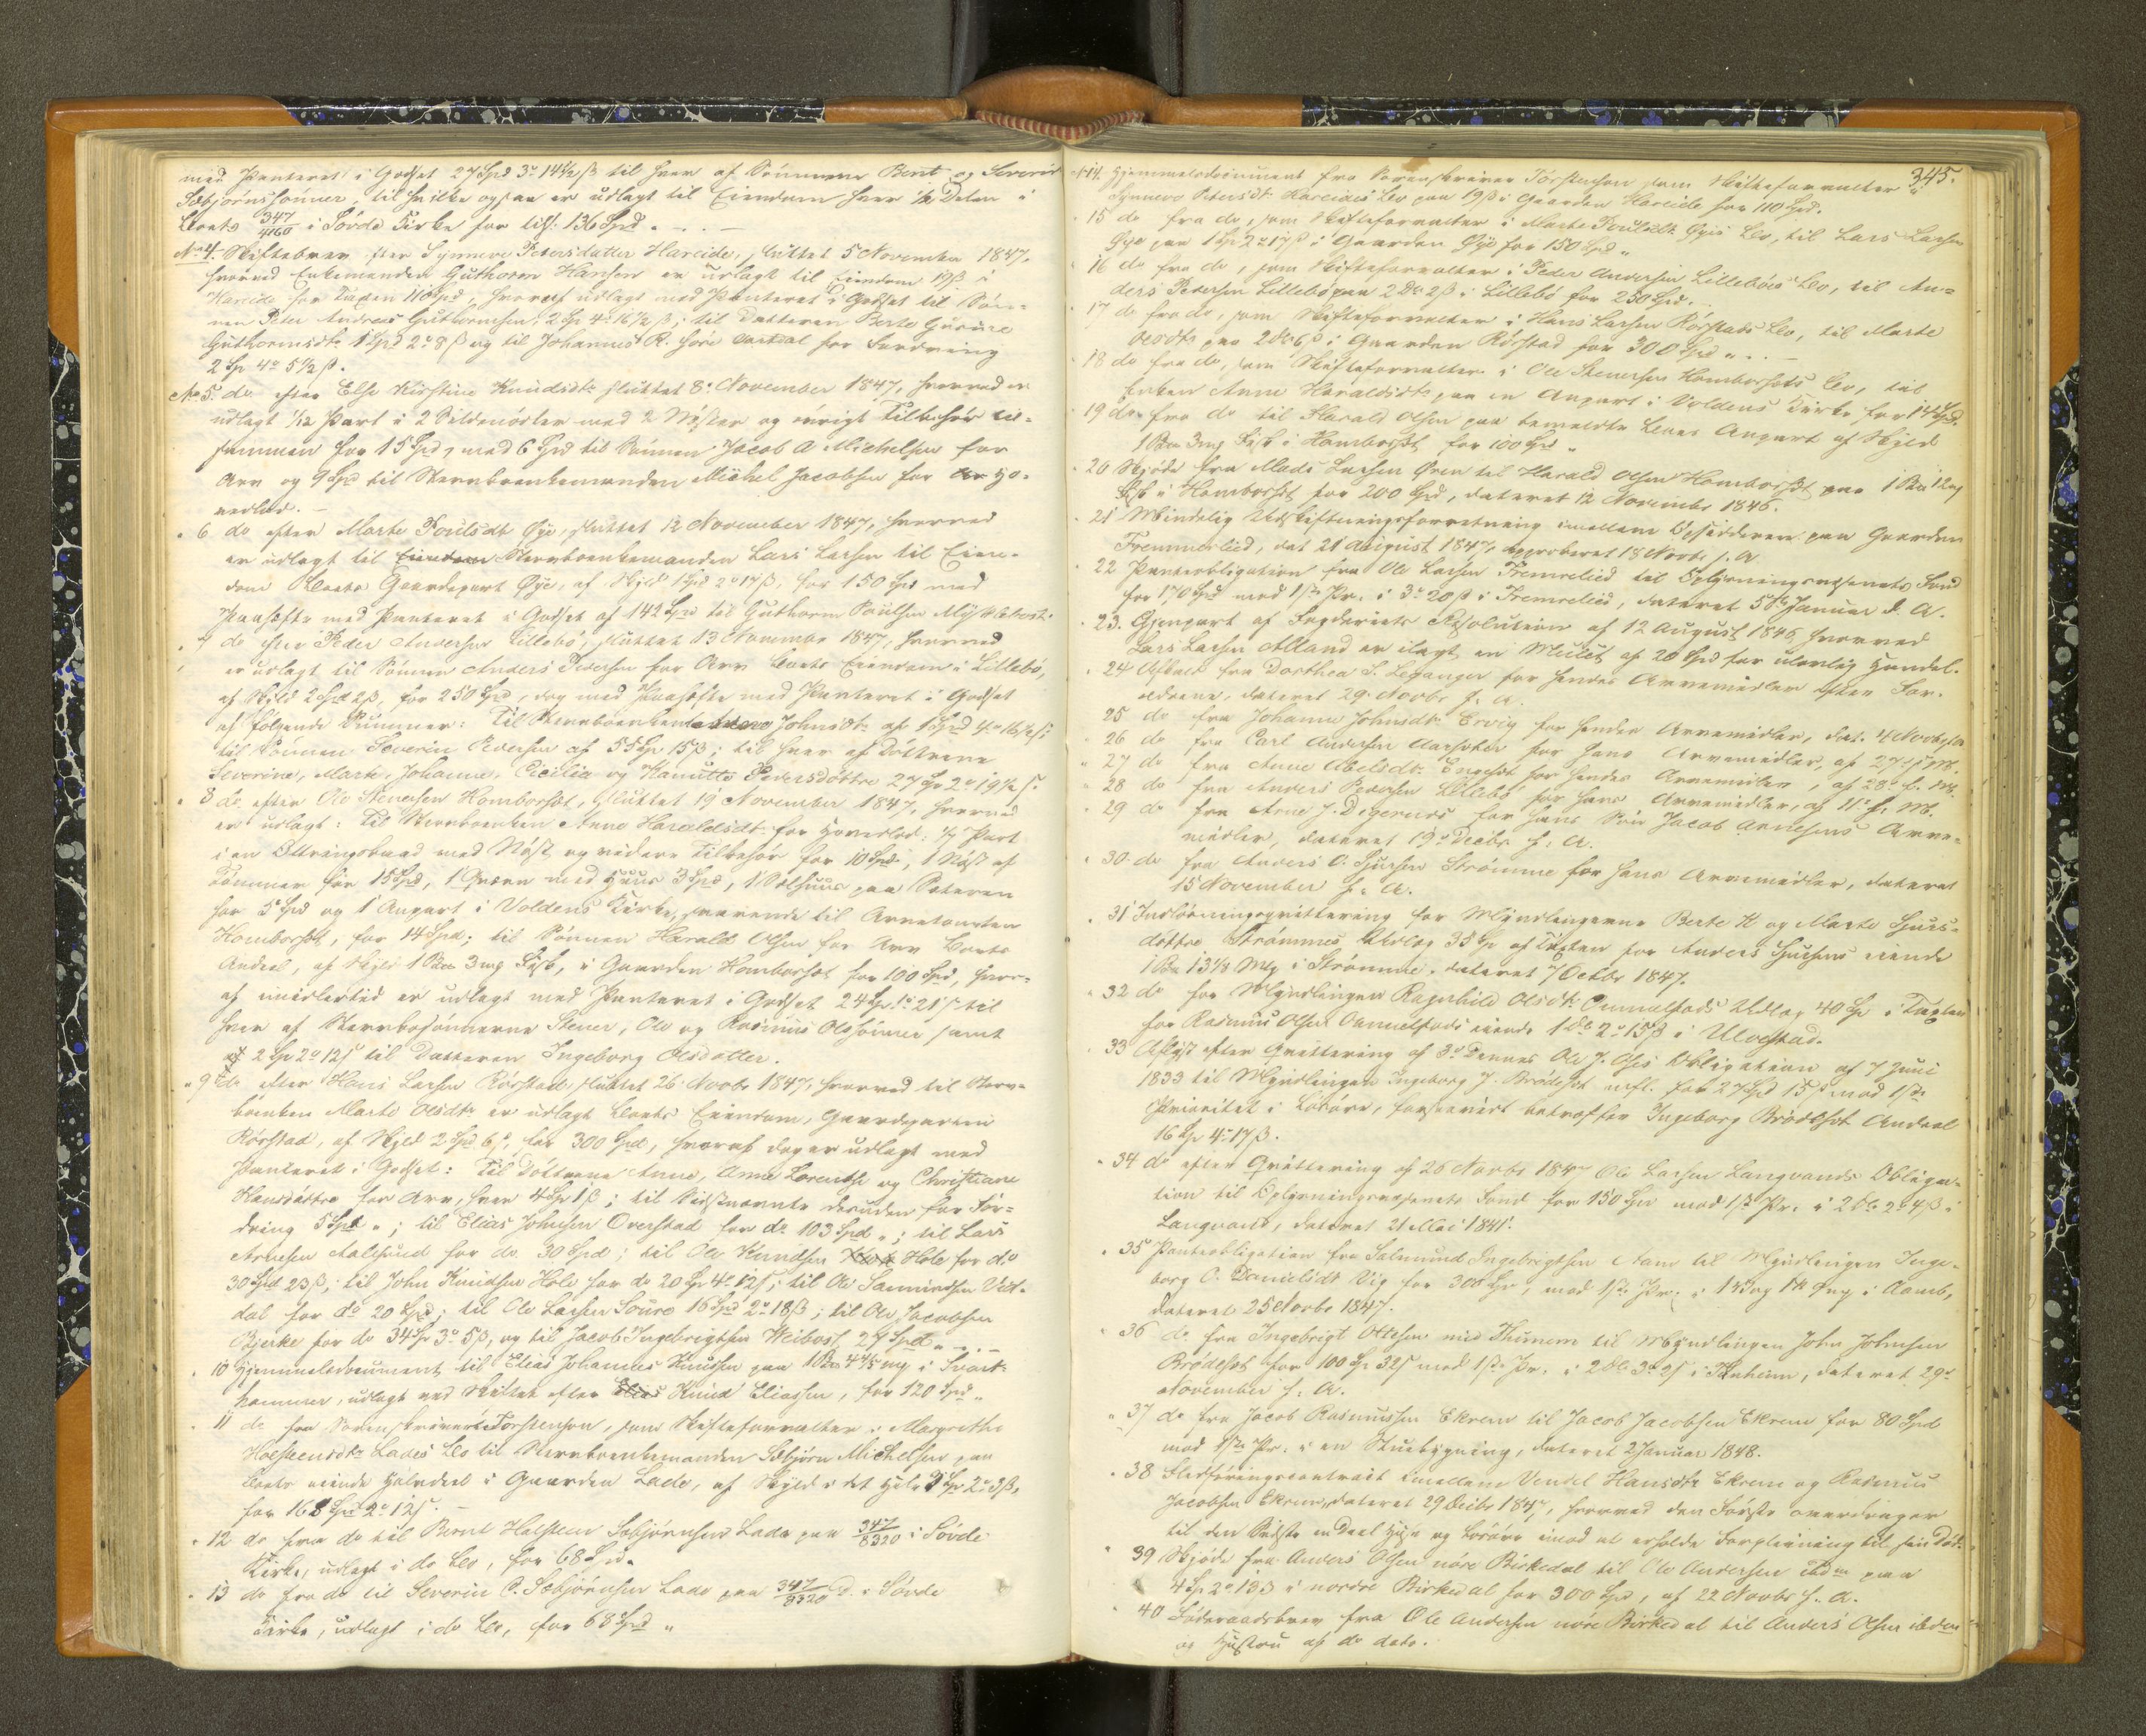 med Panteret i Godset 27 Spd 3o 14 1/2 ß til hver af Sönnerne Bent og Severin
Sæbjörnssönner, til hvilke ogsaa er udlagt til Eiendom hver 1/2 Delen i
Boets 347/4160 i Sövde Kirke for tils: 136 Spd.
No 4. Skiftebrev efter Synneve Petersdatter Hareide, sluttet 5 November 1847,
hvorved Enkemanden Guthorm Hansen er udlagt til Eiendom 19 ß i
Hareide for Taxten 110 Spd, hvoraf udlagt med Panteret i Godset til Sön-
nen Peter Andreas Guthormsen, 2 Sp 4o 16 1/2 ß; til Datteren Berte Gurine
Guthormsdtr 1 Spd 2o 8 ß og til Johannes R. före Aartdal for Fordring
2 Sp 4o 5 1/2 ß.
No 5. do efter Else Kirstine Knudsdtr sluttet 8de November 1847, hvorved er
udlagt 1/12 Part i 2 Sildenöter med 2 Nöster og övrigt Tilbehör til-
sammen for 15 Spd, med 6 Spd til Sönnen Jacob A Michelsen for
Arv og 9 Spd til Stervboenkemanden Michel Jacobsen for Ho-
vedlod.
" 6 do efter Marte Poulsdt Öye, sluttet 12 November 1847, hvorved
er udlagt til Eiendom Stervboenkemanden Lars Larsen til Eien-
dom Boets Gaardepart Öye, af Skyld 1 Spd 2o 17 ß, for 150 Spd med
Paahefte med Panteret i Godset af 142 Spd til Guthorm Poulsen Myklebost.
" 7 do efter Peder Andersen Lillebö, sluttet 13 November 1847, hvorved
er udlagt til Sönnen Anders Pedersen for Arv Boets Eiendom i Lillebö,
af Skyld 2 Spd 2 ß, for 250 Spd, dog med Paahefte med Panteret i Godset
af fölgende Summer: Til Stervboenken Johnsdtr af 1 Spd 4o 16 1/2 ß;
til Sönnen Severin Pedersen af 55 Sp 15 ß; til hver af Döttrene
Severine, Marte, Johanne, Cicilia og Hanutte Pedersdöttre 27 Sp 2o 19 1/2 ß.
" 8 do efter Ole Stenersen Homborset, sluttet 19 November 1847, hvorved
er udlagt: Til Stervboenken Anne Haraldsdt for Hovedlod: 1/2 Part
i en Ottringsbaad med Nöst og videre Tilbehör for 10 Spd, 1 Nöst af
Tömmer for 15 Spd, 1 Qværn med Huus 3 Spd, 1 Sælhuus paa Sæteren
for 5 Spd og 1 Anpart i Voldens Kirke, svarende til Arvetomten
Homborset, for 14 Spd; til Sönnen Harald Olsen for Arv Boets
Andeel, af Skyld 1 Pd 3 mg Fisk, i Gaarden Homborset for 100 Spd, hvor-
af imidlertid er udlagt med Panteret i Godset 24 Sp 1o 21 ß til
hver af Stervbosönnerne Stener, Ole og Rasmus Olssönner samt
2 Sp 2o 12 ß til Datteren Ingeborg Olsdatter.
" 9 do efter Hans Larsen Rörstad sluttet 26 Novbr 1847, hvorved til Sterv-
boenken Marte Olsdtr er udlagt Boets Eiendom, Gaardeparten
Rörstad, af Skyld 2 Spd 6 ß, for 300 Spd, hvoraf dog er udlagt med
Panteret i Godset: Til Döttrene Anne, Anne Lorentse og Christiane
Hansdöttre for Arv, hver 4 Sp 1 ß; til Sidstnævnte desuden for For-
dring 5 Spd "; til Elias Johnsen Overstad for do 103 Spd "; til Lars
Arnesen Aalesund for do 30 Spd; til Ole Knudsen Hole for do
30 Spd 23 ß; til John Knudsen Hole for do 20 Sp 4o 12 ß; til Ole Samundsen Vat-
dal for do 20 Spd; til Ole Larsen Soure 16 Spd 2o 18 ß; til Ole Jacobsen
Bjerke for do 34 Sp 3o 5 ß, og til Jacob Ingebrigtsen Weibost 24 Spd "
" 10 Hjemmelsdocument til Elias Johannes Knudsen paa 1 Pd 4 4/5 mg i Svart-
hammer, udlagt ved Skiftet efter Knud Eliassen, for 120 Spd "
" 11 do fra Sorenskriver Torstenson, som Skifteforvalter i Margrethe
Holstensdtr Lades Bo til Stervboenkemanden Sebjörn Michelsen paa
Boets eiende Halvdeel i Gaarden Lade, af Skyld i det Hele 3 Sp 2o 3 ß,
for 168 Spd 2o 12 ß.
" 12 do fra do til Bernt Holsteen Sæbjörnsen Lade paa 347/8320 i Sövde
Kirke, udlagt i do Bo, for 68 Spd.
" 13 do fra do til Severin C. Sæbjörnsen Lade paa 347/8320 D. i Sövde
Kirke, udlagt i do Bo, for 68 Spd "
345.
No 14. Hjemmelsdocument fra Sorenskriver Torstenson som Skifteforvalter i
Synneve Petersdt Hareides Bo paa 19 ß i Gaarden Hareide for 110 Spd.
15 do fra do, som Skifteforvalter i Marte Poulsdt Öyes Bo, til Lars Larsen
Öye paa 1 Sp 2o 17 ß i Gaarden Öye for 150 Spd "
16 do fra do, som Skifteforvalter i Peder Andersen Lillebös Bo, til An-
ders Pedersen Lillebö paa 2 Dr 2 ß i Lillebö for 250 Spd.
17 do fra do, som Skifteforvalter i Hans Larsen Rörstads Bo, til Marte
Olsdtr paa 2 Dr 6 ß i Gaarden Rörstad for 300 Spd "
18 do fra do, som Skifteforvalter i Ole Stenersen Homborsets Bo, til
Enken Anne Haraldsdt paa en Anpart i Voldens Kirke for 14 Spd.
19 do fra do til Harald Olsen paa bemeldte Boes Anpart af Skyld
1 Pd 3 mg Fisk i Homborset for 100 Spd "
" 20 Skjöde fra Mads Larsen Ören til Harald Olsen Homborset paa 1 Pd 12 mg
Fisk i Homborset for 200 Spd, dateret 12 November 1846.
" 21 Mindelig Udskiftningsforretning imellem Opsidderne paa Gaarden
Fremmerlied, dat 21 August 1847, approberet 18 Novbr s. A.
" 22 Panteobligation fra Ole Larsen Fremrelied til Oplysningsvæsenets Fond
for 170 Spd med 1ste Pr. i 3o 20 ß i Fremrelied, dateret 5te Januar d. A.
" 23. Gjenpart af Fogderiets Resolution af 12 August 1846 hvorved
Lars Larsen Alland er ilagt en Mulct af 20 Spd for ulovlig Handel.
" 24 Afkald fra Dorthea S. Leganger for hendes Arvemidler efter For-
ældrene, dateret 29 Novbr f. A.
25 do fra Johanne Johnsdtr Ervig for hendes Arvemidler, dat. 4 Novbr f A
" 26 do fra Carl Andersen Aarseter for hans Arvemidler, af 27 f. M.
" 27 do fra Anne Abelsdt Engeset for hendes Arvemidler, af 28de f. M.
28 do fra Anders Pedersen Lillebö for hans Arvemidler, af 11te f. M.
" 29 do fra Arne J. Digernes for hans Sön Jacob Arnesens Arve-
midler, dateret 19de Decbr f. A.
" 30 do fra Anders O. Sjursen Strömme for hans Arvemidler, dateret
15 November f. A.
" 31 Indlösningsqvittering for Myndlingerne Berte K og Marte Sjurs-
döttre Strömmes Udlæg 35 Sp af Taxten for Anders Sjursens eiende
1 Pd 13 1/8 Mg i Strömme, dateret 7 Octbr 1847.
" 32 do for Myndlingen Ragnhild Olsdtr Emmelfods Udlæg 40 Sp i Taxten
for Rasmus Olsen Emmelfods eiende 1 Dr 2o 15 ß i Ulvestad.
33 Aflyst efter Qvittering af 3de Dennes Ole J. Oses Obligation af 7 Juni
1833 til Myndlingen Ingeborg J. Brödeset m.fl. for 27 Spd 15 ß med 1ste
Prioritet i Lösöre, forsaavidt betræffer Ingeborg Brödeset Andeel
16 Sp 4o 17 ß.
" 34 do efter Qvittering af 26 Novbr 1847 Ole Larsen Langvands Obliga-
tion til Oplysningsvæsenets Fond for 150 Spd med 1ste Pr. i 2 Dr 2o 4 ß i
Langvand, dateret 21 Mai 1841.
" 35 Panteobligation fra Salmund Ingebrigtsen Aam til Myndlingen Inge-
borg O. Danielsdt Vig for 300 Spd, med 1ste Pr. i 1 Vog 1 Pd 9 mg i Aam,
dateret 25 Novbr 1847.
" 36 do fra Ingebrigt Ottesen med Thunem til Myndlingen John Johnsen
Brödeset for 100 Sp 32 ß med 1ste Pr. i 2 Dr 3o 2 ß i Thunem, dateret 29de
November f. A.
" 37 do fra Jacob Rasmussen Ekrem til Jacob Jacobsen Ekrem for 80 Spd
med 1ste Pr. i en Stuebygning, dateret 2 Januar 1848.
" 38 Fledföringscontract imellem Vendel Hansdtr Ekrem og Rasmus
Jacobsen Ekrem, dateret 29 Decbr 1847, hvorved den Förste overdrager
til den Sidste en Deel Huse og Lösöre imod at erholde Forpleining til sin Död.
" 39 Skjöde fra Anders Olsen nöre Birkedal til Ole Andersen ibdm paa
4 Sp 2o 13 ß i nordre Birkedal for 300 Spd, af 22 Novbr f. A.
" 40 Föderaadsbrev fra Ole Andersen nöre Birkedal til Anders Olsen ibdem
og Hustru af do dato.